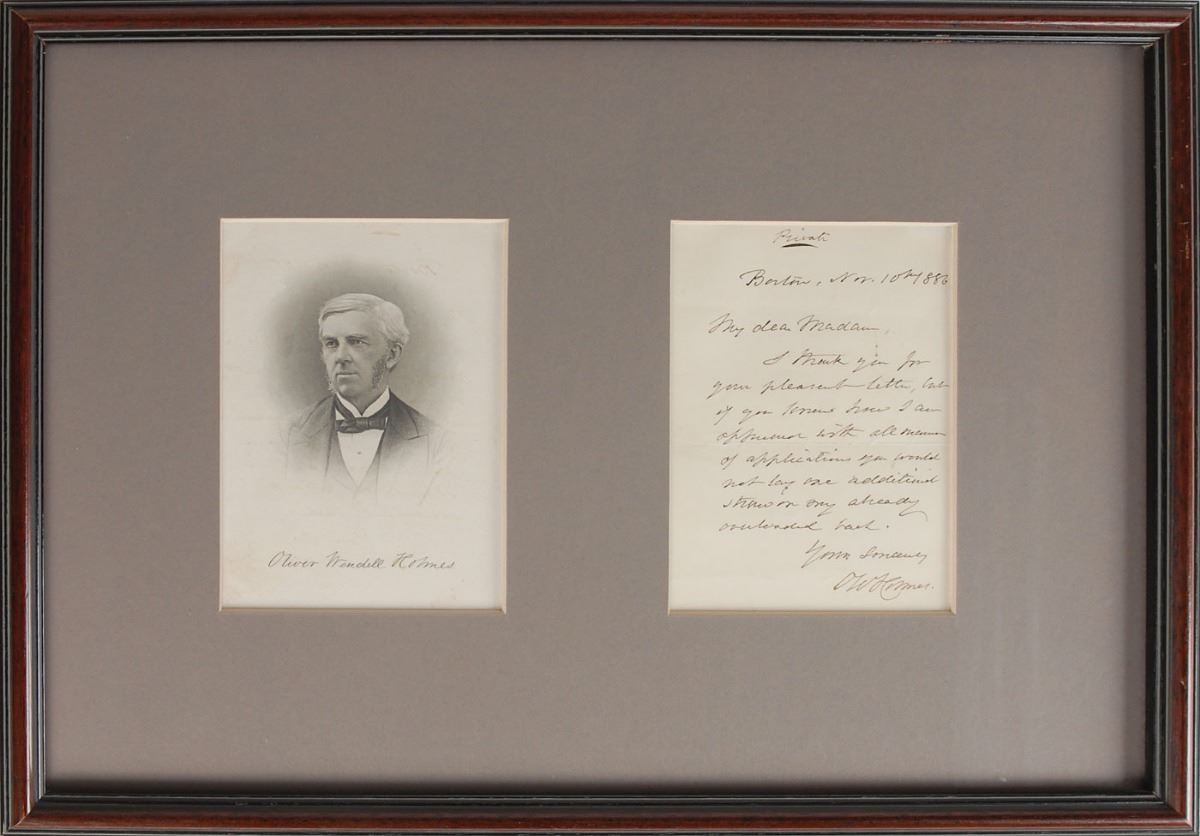 Oliver Wendell Holmes
Private
Boston, Nov. 10th 1886
My dear Madam,
I thank you for
your pleasant letter, but
if you knew how I am
oppressed with all manner
of applications you would
not lay one additional
straw on my already
overloaded back.
Yours sincerely
O W Holmes.